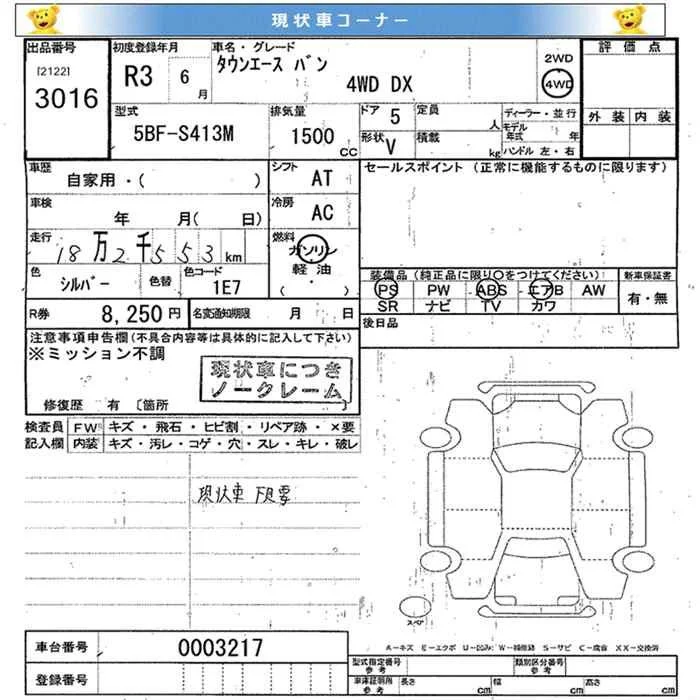 現状車コーナー
出品番号
[2122]
3016
初度登録年月
R3 6月
車名・グレード
タウンエース バン
4WD DX
2WD
4WD
評価点
外装 内装
型式
5BF-S413M
排気量
1500 cc
ドア 5
定員 人
形状 V
積載 kg
ディーラー・並行
モデル年式 年
ハンドル 左・右
車歴
自家用・( )
シフト AT
セールスポイント (正常に機能するものに限ります)
車検
年 月( 日)
冷房 AC
走行
18万2千553 km
燃料
ガソリン
軽油
( ・ )
色
シルバー
色替
色コード
1E7
装備品(純正品に限り○をつけてください)
新車保証書
PS PW ABS エアB AW
有・無
SR ナビ TV カワ
R券 8,250円
名変通知期限 月 日
後日品
注意事項申告欄(不具合内容等は具体的に記入して下さい)
※ミッション不調
現状車につき
ノークレーム
修復歴 有 〔箇所 〕
検査員記入欄
FW キズ・飛石・ヒビ割・リペア跡・×要
内装 キズ・汚レ・コゲ・穴・スレ・キレ・破レ
現状車 下見要
スペア
車台番号 0003217
A-キズ E-エクボ U-凹み W-補修跡 S-サビ C-腐食 XX-交換済
登録番号
型式指定番号 参考
類別区分番号 参考
車庫証明用 参考
長さ cm 幅 cm 高さ cm